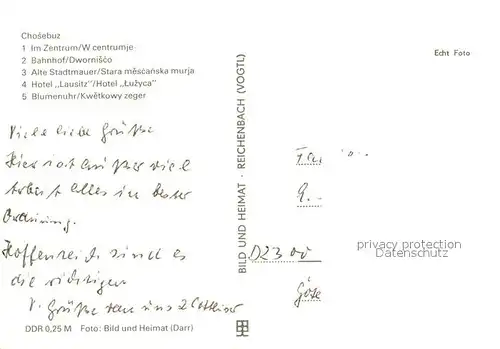 Chośebuz
1 Im Zentrum/W centrumje
2 Bahnhof/Dwornišćo
3 Alte Stadtmauer/Stara měsćańska murja
4 Hotel „Lausitz"/Hotel „Łużyca"
5 Blumenuhr/Kwětkowy zeger
Viele liebe Grüße
Hier ist außer viel
Arbeit alles in bester
Ordnung.
Hoffentlich sind es
die richtigen
V. Grüße von uns 2
DDR 0,25 M Foto: Bild und Heimat (Darr)
BILD UND HEIMAT · REICHENBACH (VOGTL)
Echt Foto
privacy protection
Datenschutz